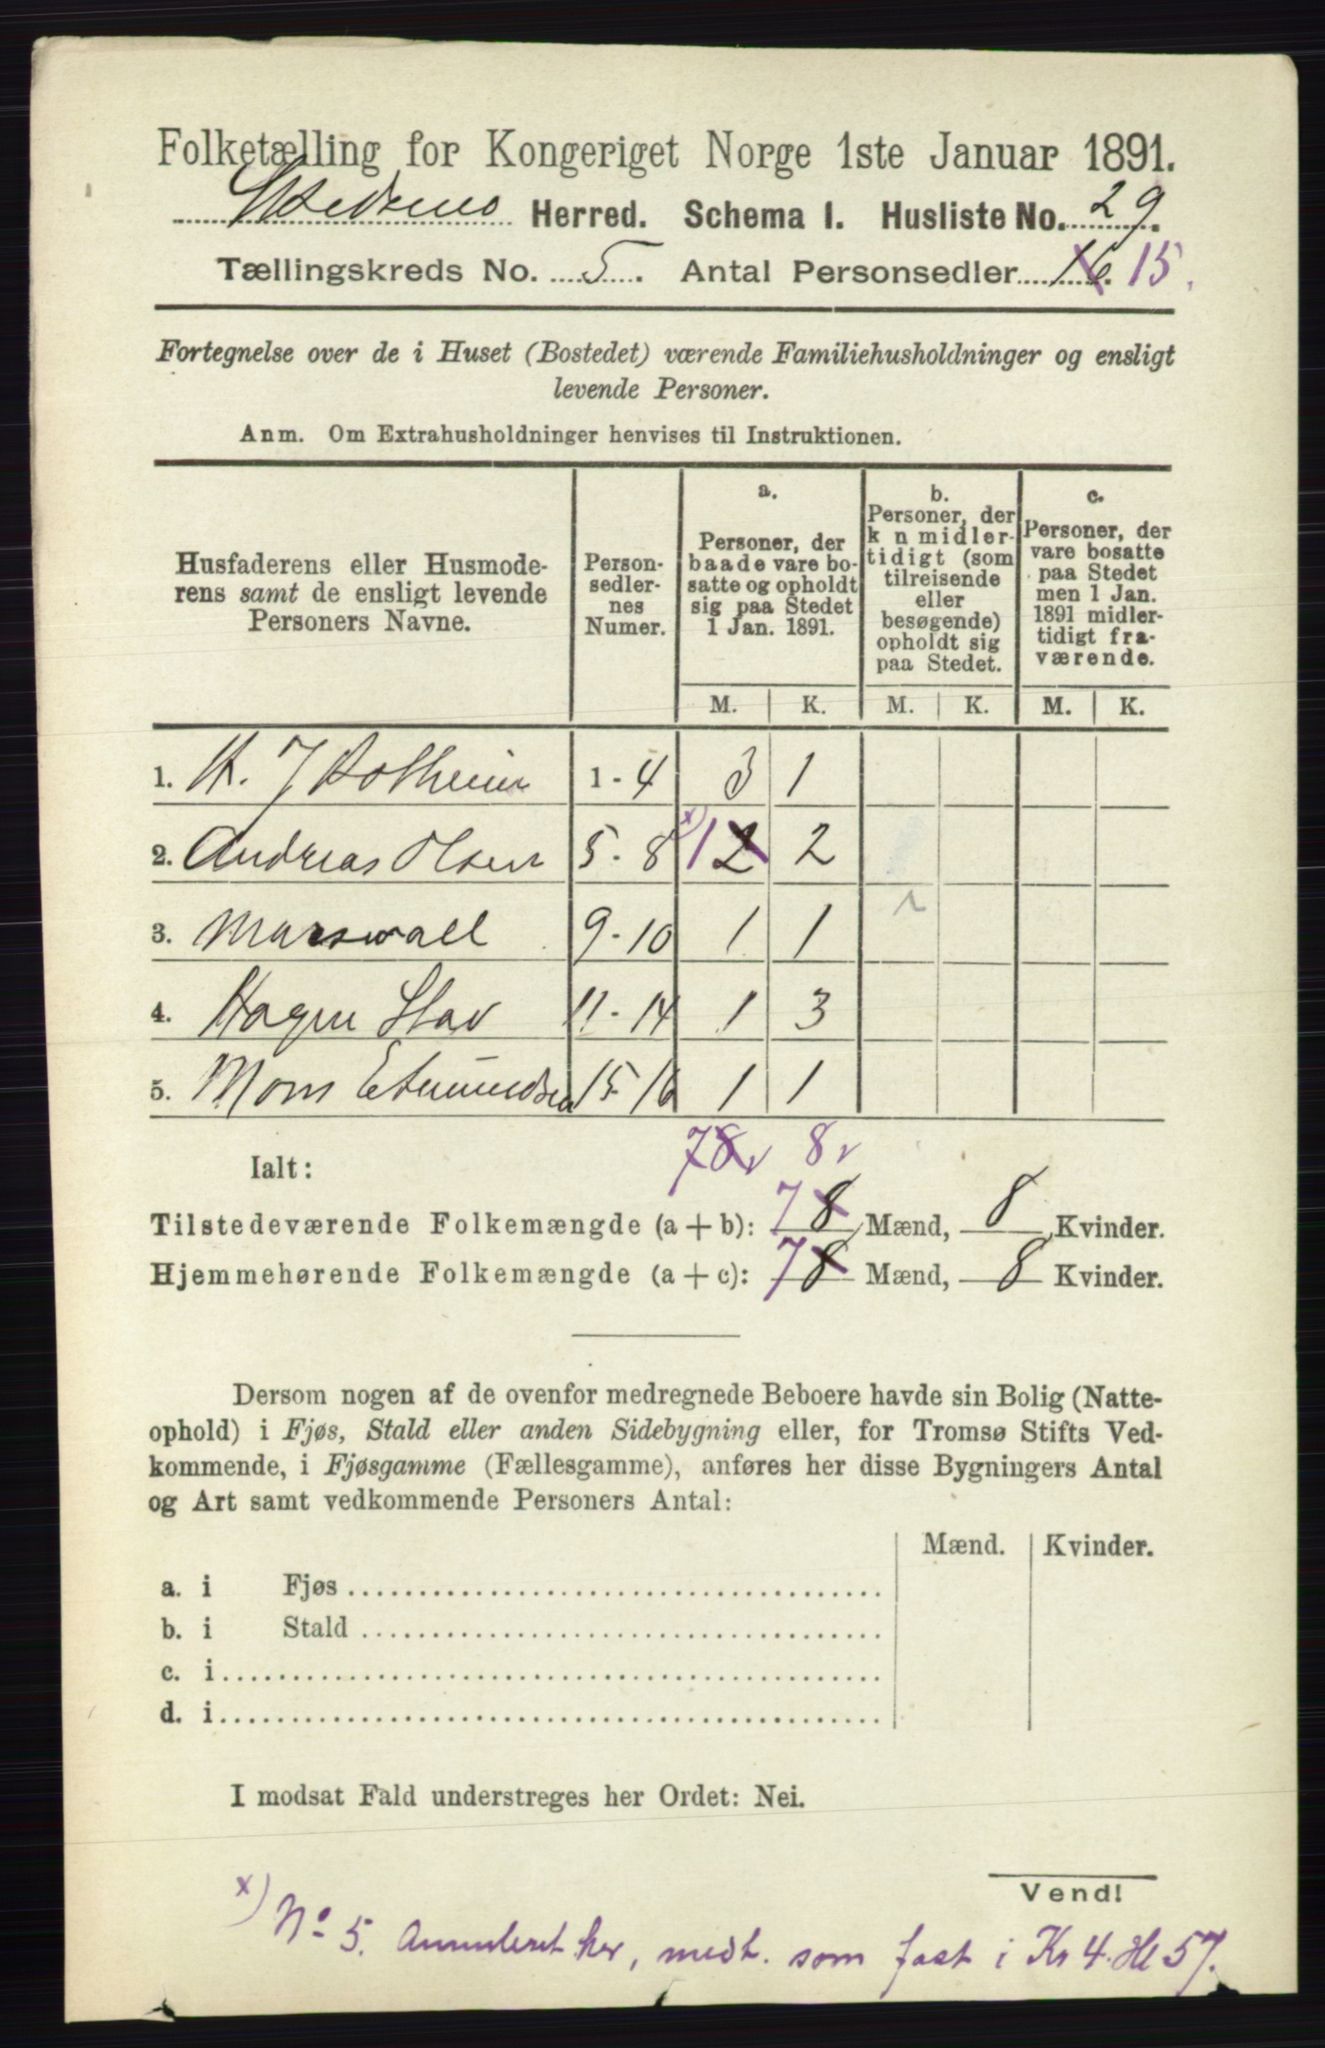 Folketælling for Kongeriget Norge 1ste Januar 1891.
Skedsmo Herred. Schema I. Husliste No. 29.
Tællingskreds No. 5. Antal Personsedler 16. 15.
Fortegnelse over de i Huset (Bostedet) værende Familiehusholdninger og ensligt
levende Personer.
Anm. Om Extrahusholdninger henvises til Instruktionen.
Husfaderens eller Husmode-
rens samt de ensligt levende
Personers Navne.
Person-
sedler-
nes
Numer.
a.
Personer, der
baade vare bo-
satte og opholdt
sig paa Stedet
1 Jan. 1891.
b.
Personer, der
k n midler-
tidigt (som
tilreisende
eller
besøgende)
opholdt sig
paa Stedet.
c.
Personer, der
vare bosatte
paa Stedet
men 1 Jan.
1891 midler-
tidigt fra-
værende.
M. K. M. K. M. K.
1. 1 - 4 3 1
2. Andreas Olsen 5 - 8 x) 1 2 2
3. Marswall 9 - 10 1 1
4. Hagen Stav 11 - 14 1 3
5. 15 16 1 1
Ialt: 7 8 v 8 v
Tilstedeværende Folkemængde (a + b): 7 8 Mænd, 8 Kvinder.
Hjemmehørende Folkemængde (a + c): 7 8 Mænd, 8 Kvinder.
Dersom nogen af de ovenfor medregnede Beboere havde sin Bolig (Natte-
ophold) i Fjøs, Stald eller anden Sidebygning eller, for Tromsø Stifts Ved-
kommende, i Fjøsgamme (Fællesgamme), anføres her disse Bygningers Antal
og Art samt vedkommende Personers Antal:
Mænd. Kvinder.
a. i Fjøs
b. i Stald
c. i
d. i
I modsat Fald understreges her Ordet: Nei.
Vend!
x) No 5. Annuleret her, medt. som fast i Kr 4. Hl 57.